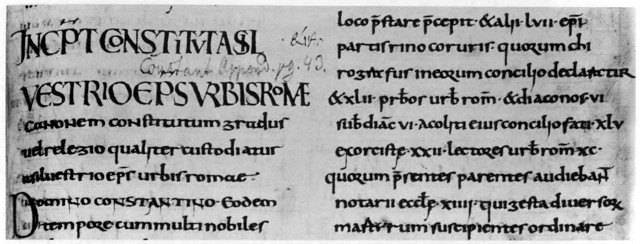 INCPT CONSTITUTA S SIL
Constant Append. pg. 43.
VESTRIO EPS URBIS ROMÆ
canonem constitutum gradus
uel relegio qualiter custodiatur
siluestrio ep̄s urbis romae
Domino constantino · Eodem
tempore cum multi nobiles
loco p̄stare p̄cepit · & alii · lvii · ep̄i
partis rino coruris · quorum chi
rografus in eorum concilio declaratur
& xlii · p̄rb̄os urb̄ rom̄ · & diaconos · vi
sub̄ diac̄ vi · acoliti eius concilio fati · xlv
exorciste · xxii · lectores urb̄ rom̄ · xc ·
quorum p̄rentes parentes audiebant̄
notarii eccl̄e · xiiii · qui gesta diuersor̄
martyrum suscipientes ordinare